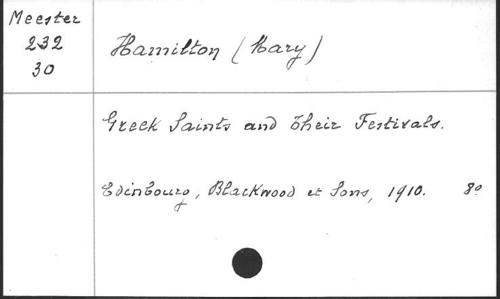 Meester
232
30
Hamilton (Mary)
Greek Saints and Their Festivals.
Edinbourg, Blackwood et Sons, 1910. 8°